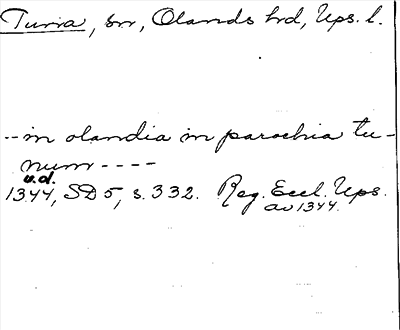 Tuna, sn, Olands hd, Ups. l.
-- in olandia in parochia tu-
num ----
u.d.
1344, SD 5, s. 332. Reg. Eccl. Ups.
av 1344.